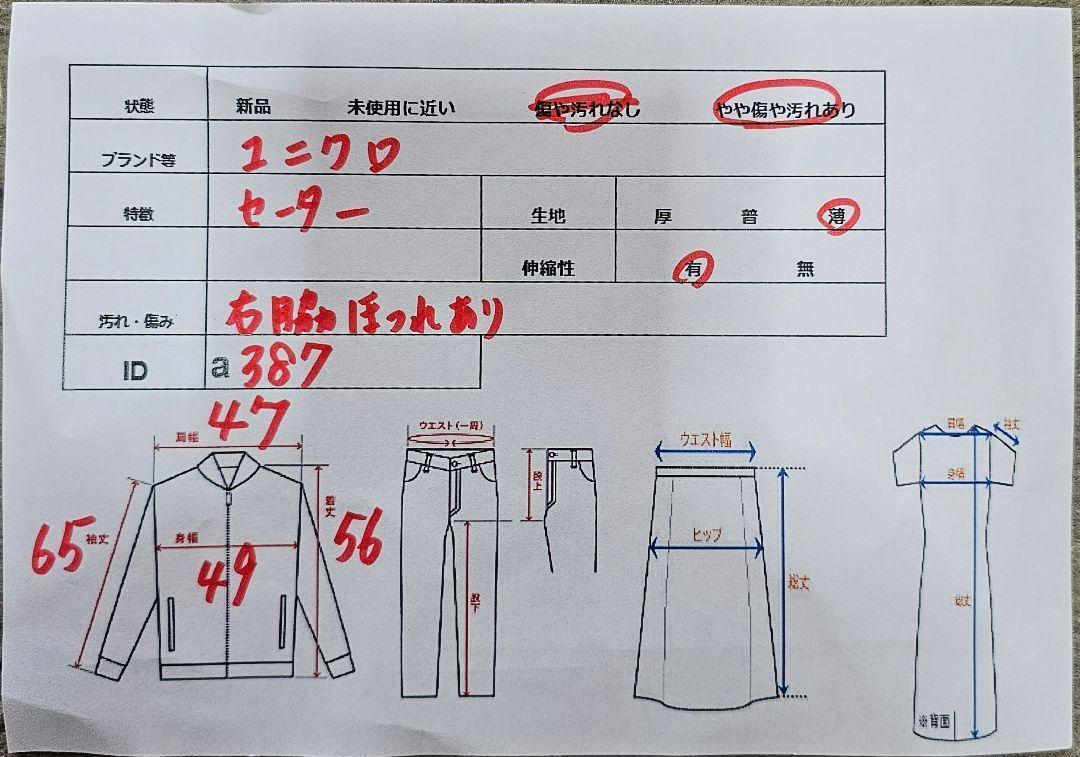 状態 新品 未使用に近い 傷や汚れなし やや傷や汚れあり
ブランド等 ユニクロ
特徴 セーター 生地 厚 普 薄
伸縮性 有 無
汚れ・傷み 右脇ほつれあり
ID a 387
47
肩幅
65 袖丈
身幅
49
着丈
56
ウエスト(一周)
股上
股下
ウエスト幅
ヒップ
総丈
肩幅
袖丈
身幅
総丈
※背面